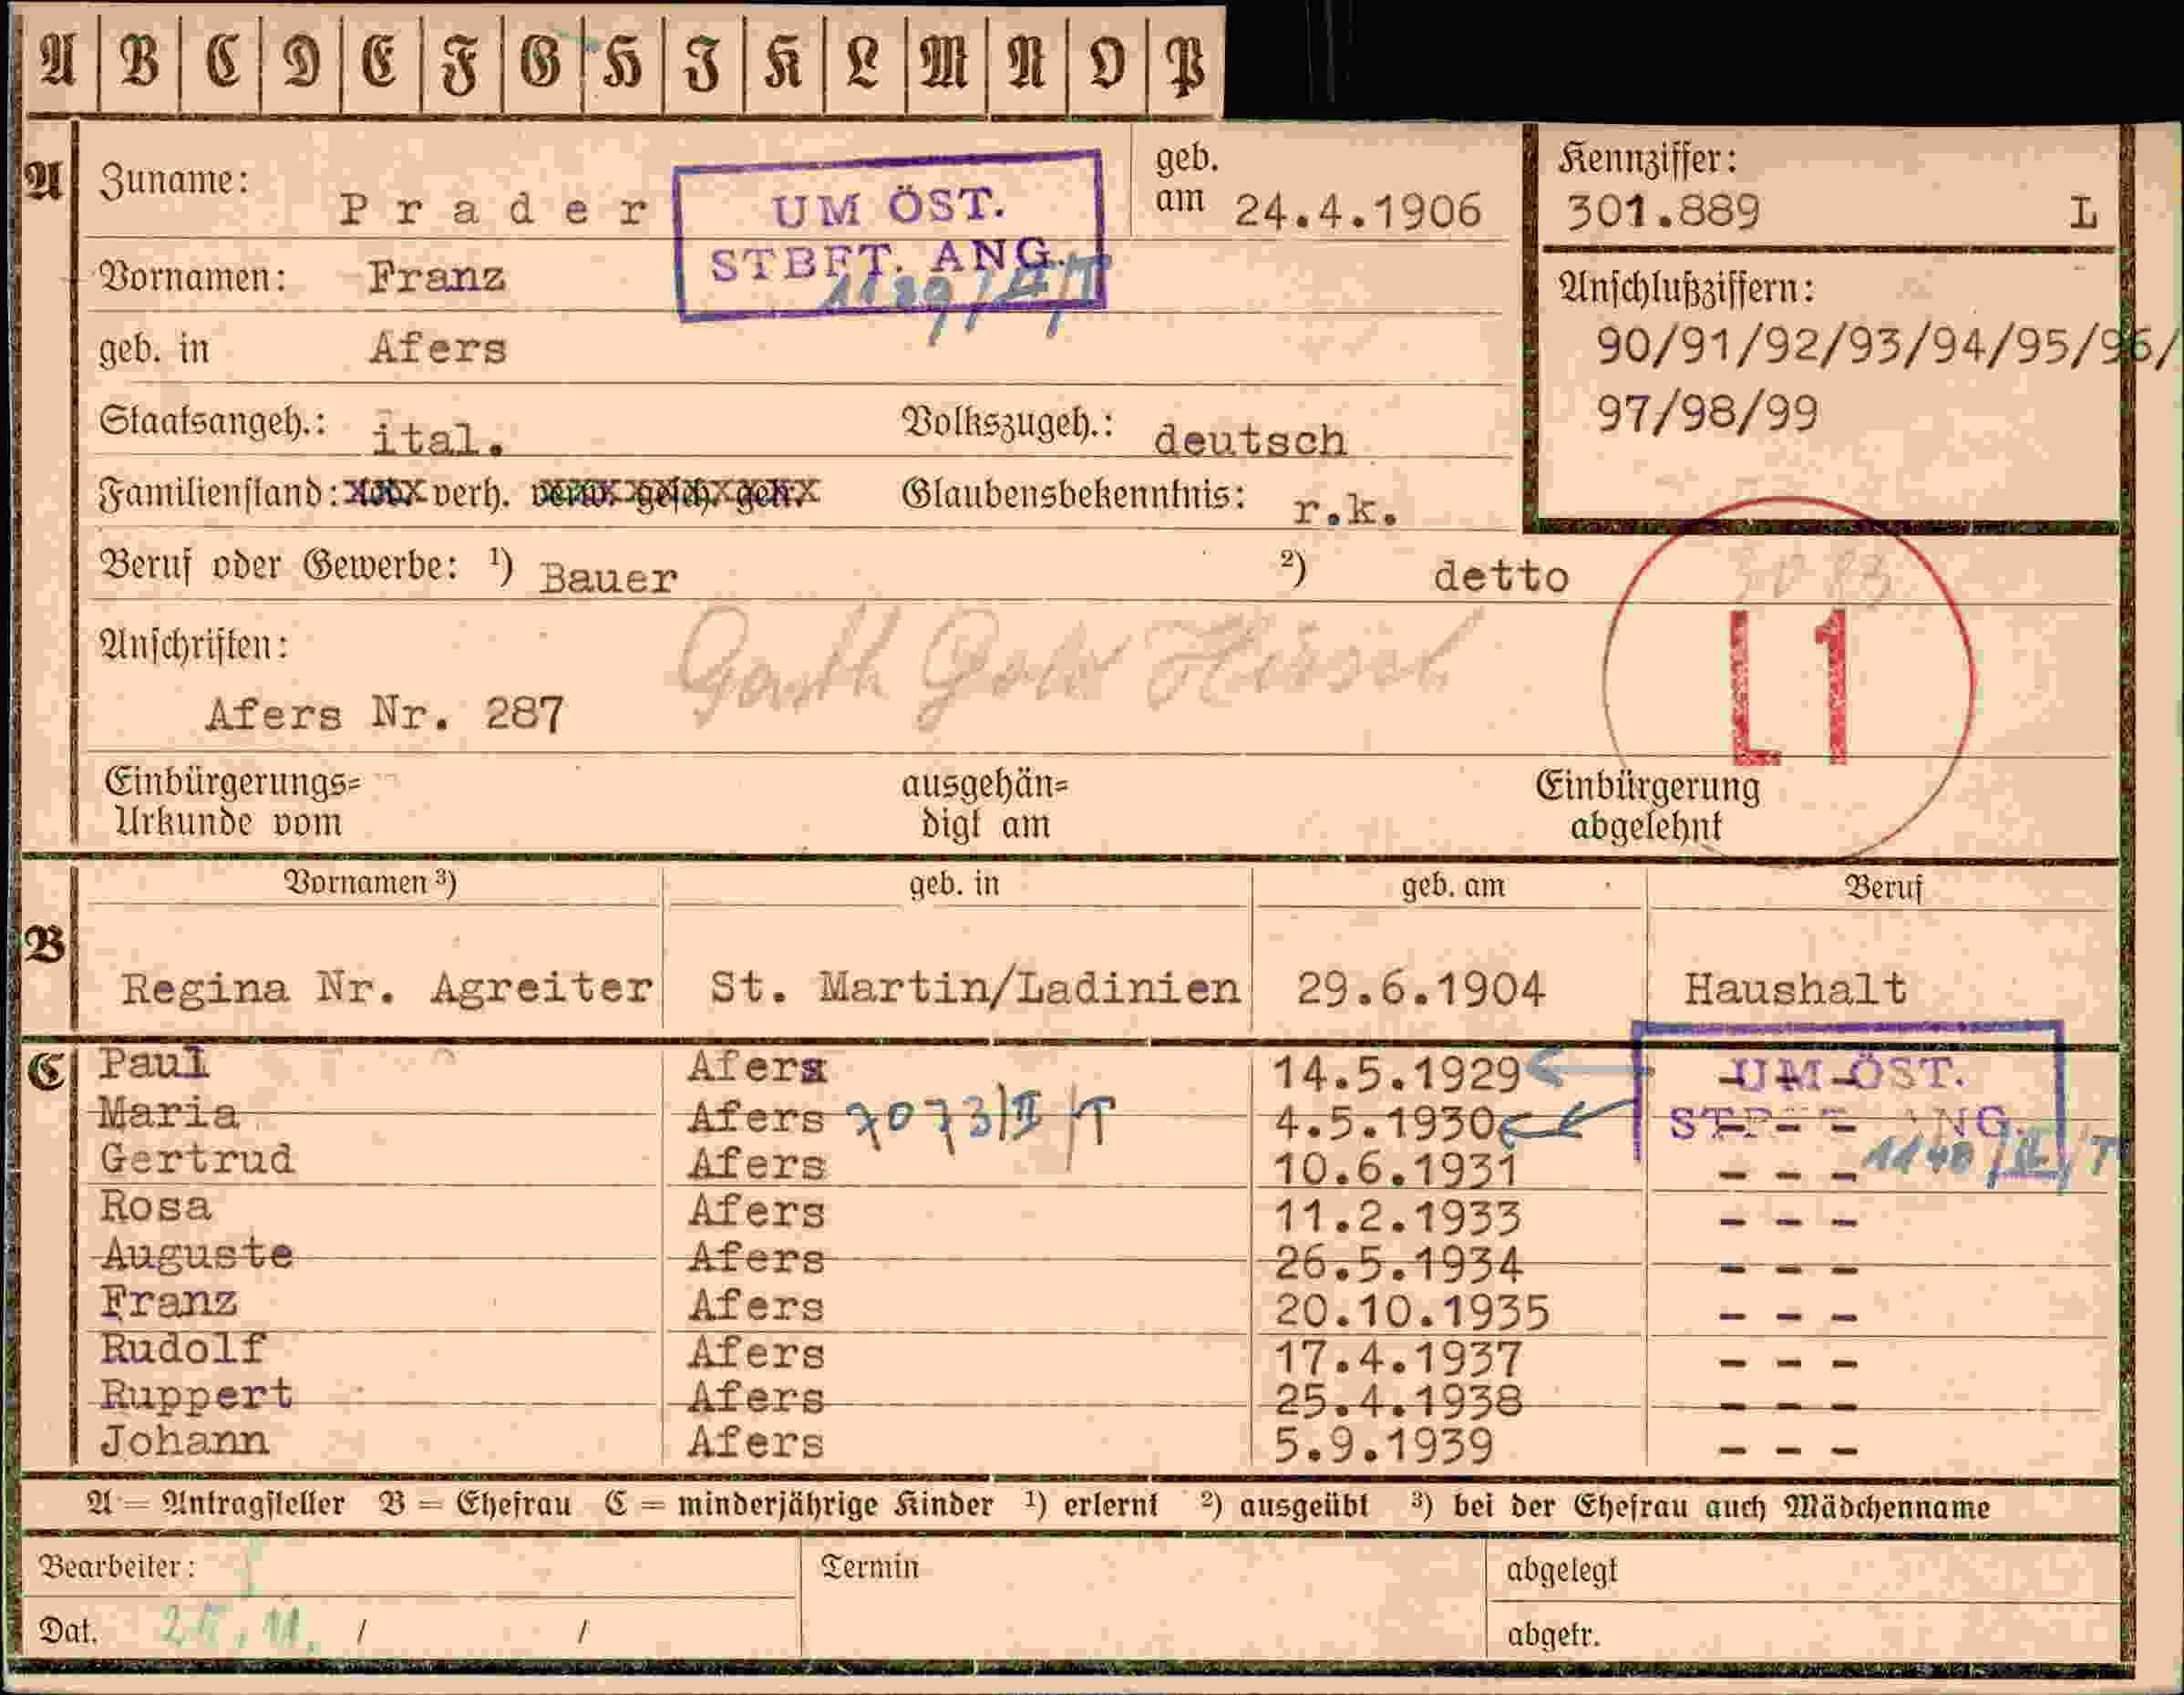 A B C D E F G H I K L M N O P
A
Zuname: Prader
UM ÖST.
STBFT. ANG.
geb. am 24.4.1906
Kennziffer:
301.889 L
Vornamen: Franz
Anschlußziffern:
90/91/92/93/94/95/96/
97/98/99
geb. in Afers
Staatsangeh.: ital. Volkszugeh.: deutsch
Familienstand: verh. Glaubensbekenntnis: r.k.
Beruf oder Gewerbe: ¹) Bauer ²) detto
3083
L1
Anschriften:
Afers Nr. 287
Einbürgerungs=
Urkunde vom
ausgehän=
digt am
Einbürgerung
abgelehnt
B
Vornamen ³) geb. in geb. am Beruf
Regina Nr. Agreiter St. Martin/Ladinien 29.6.1904 Haushalt
C
UM ÖST.
Paul Afers 14.5.1929 - - -
Maria Afers 7073/II/T 4.5.1930 - - -
Gertrud Afers 10.6.1931 - - - 1140/II/T
Rosa Afers 11.2.1933 - - -
Auguste Afers 26.5.1934 - - -
Franz Afers 20.10.1935 - - -
Rudolf Afers 17.4.1937 - - -
Ruppert Afers 25.4.1938 - - -
Johann Afers 5.9.1939 - - -
A = Antragsteller B = Ehefrau C = minderjährige Kinder ¹) erlernt ²) ausgeübt ³) bei der Ehefrau auch Mädchenname
Bearbeiter: Termin abgelegt
Dat. / / abgetr.